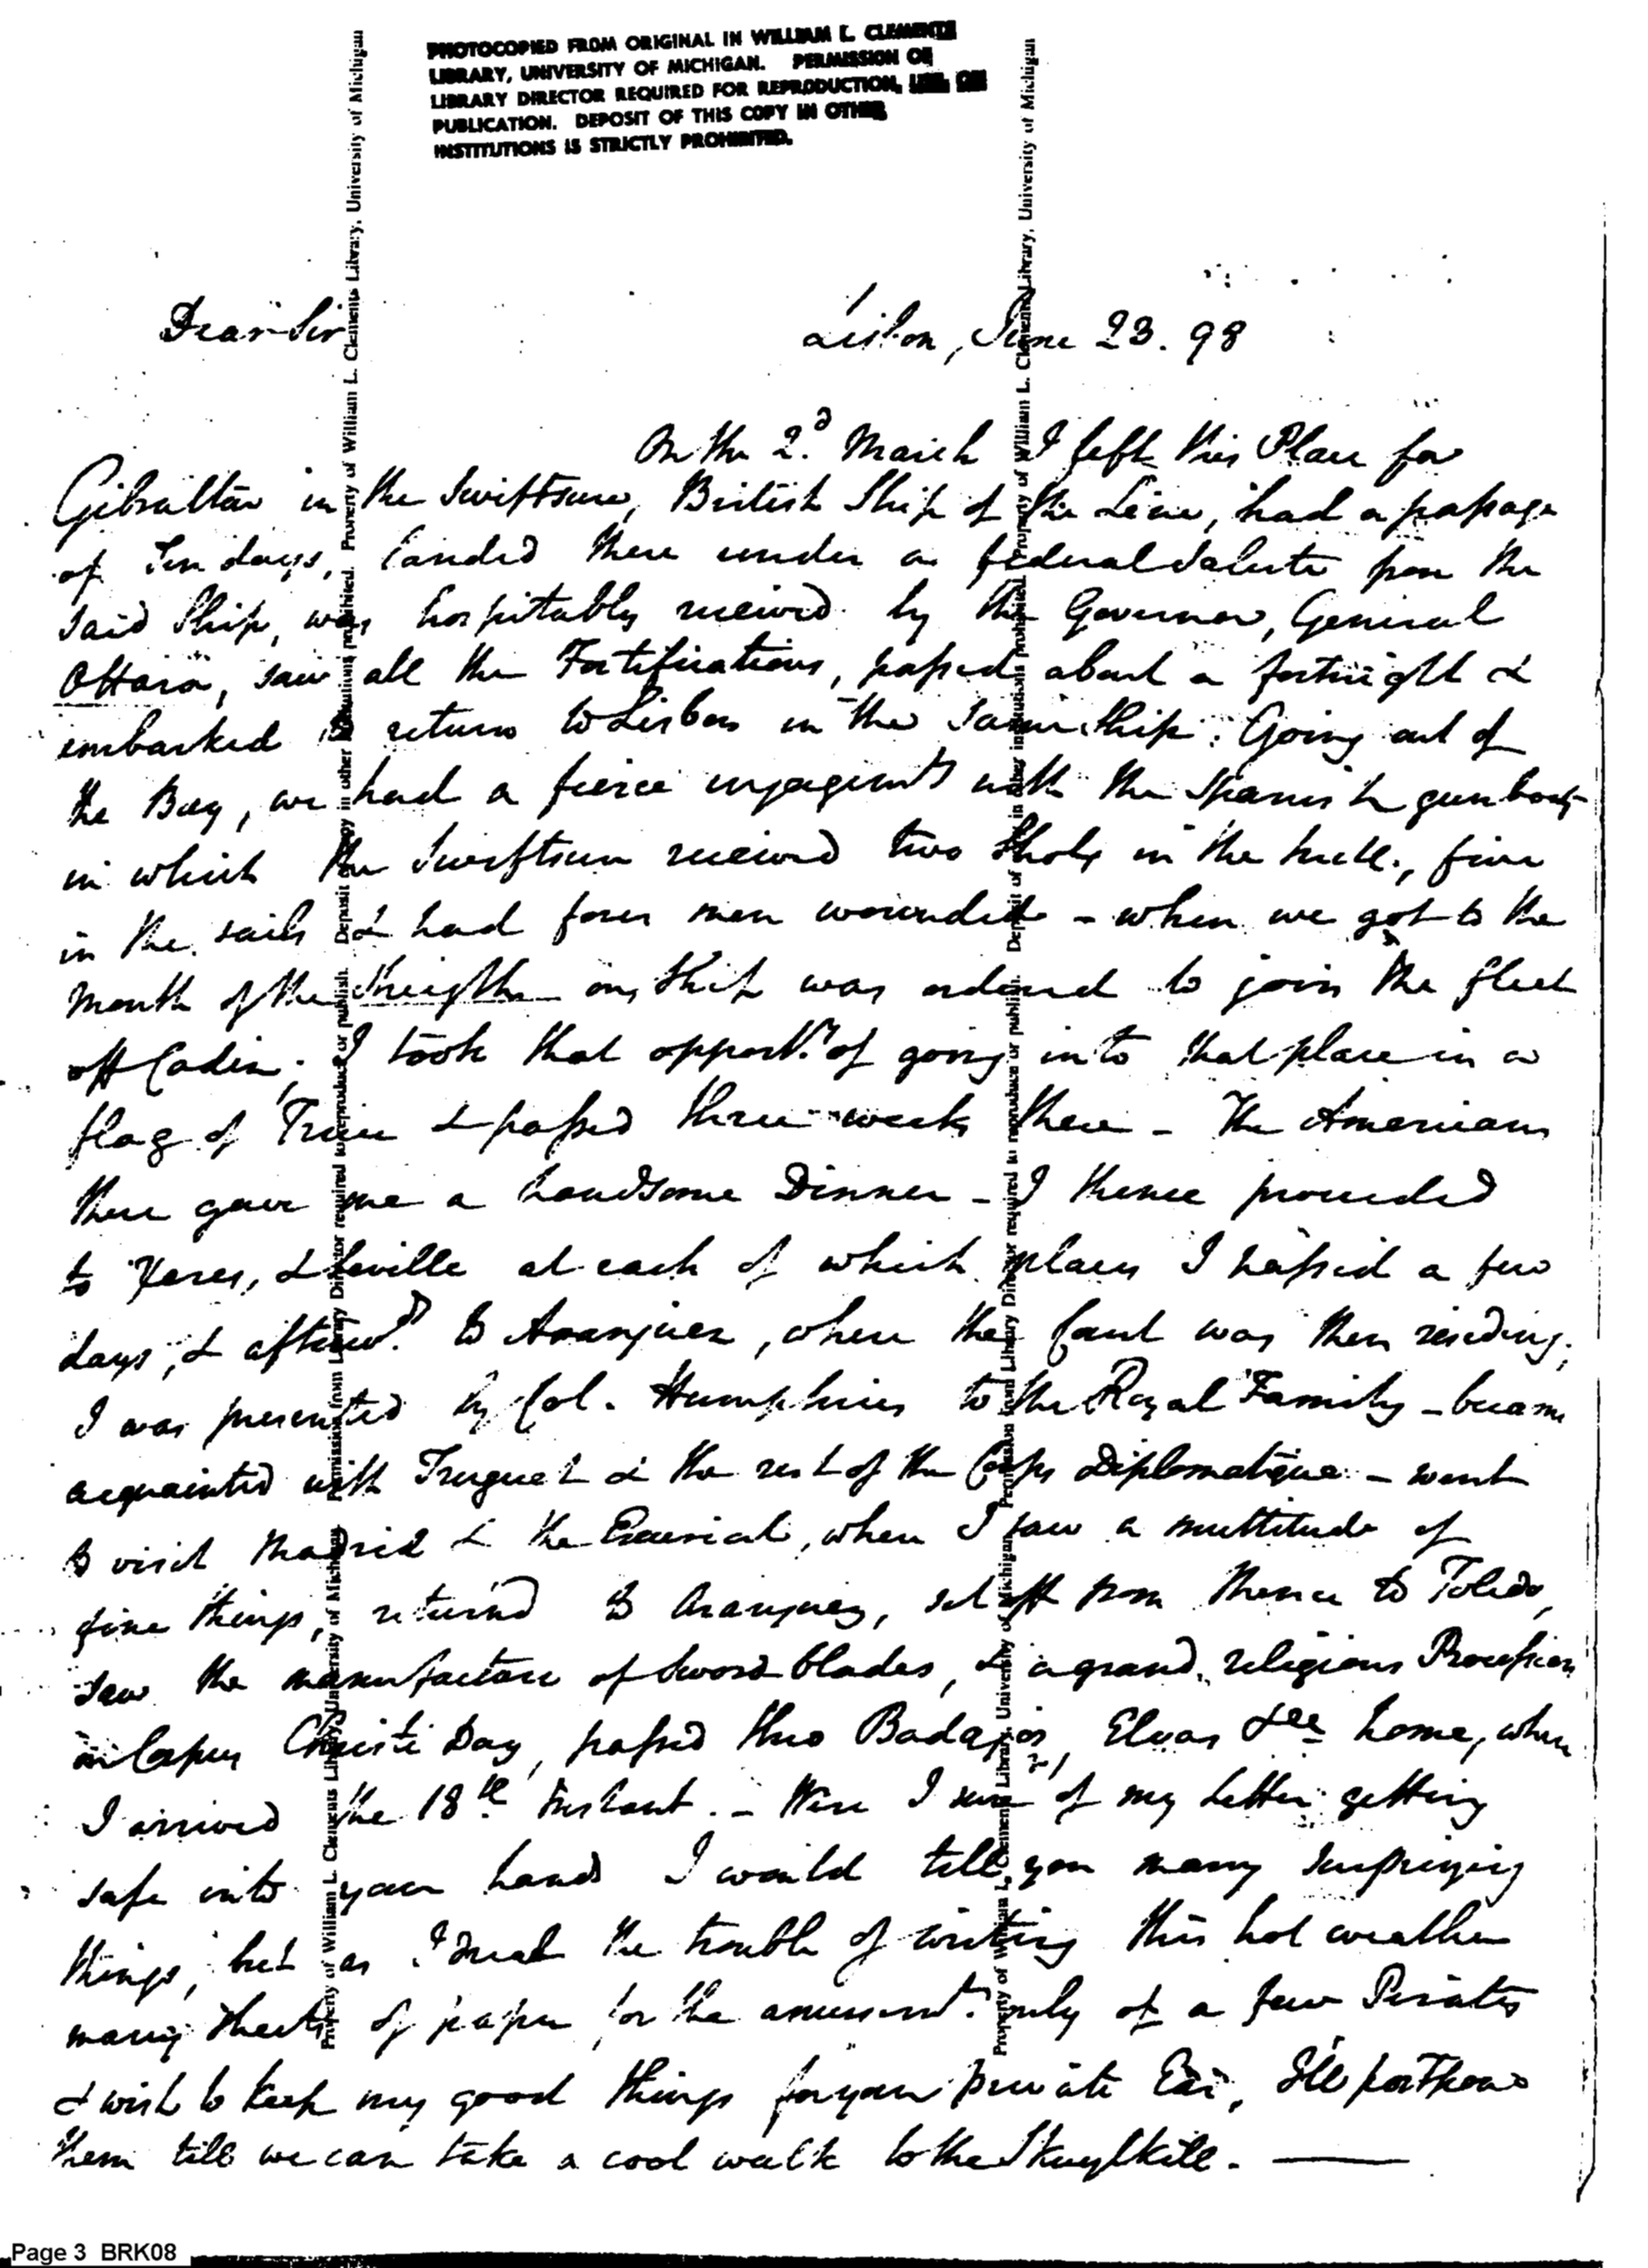 PHOTOCOPIED FROM ORIGINAL IN WILLIAM L. CLEMENTS
LIBRARY, UNIVERSITY OF MICHIGAN. PERMISSION OF
LIBRARY DIRECTOR REQUIRED FOR REPRODUCTION, USE, OR
PUBLICATION. DEPOSIT OF THIS COPY IN OTHER
INSTITUTIONS IS STRICTLY PROHIBITED.
Dear Sir
Lisbon, June 23. 98
On the 2d March I left this Place for
Gibraltar in the Swiftsure, British Ship of the Line, had a passage
of Ten days, landed there under a federal salute from the
said Ship, was hospitably received by the Governor, General
OHara, saw all the Fortifications, passed about a fortnight &
embarked to return to Lisbon in the same Ship: Going out of
the Bay, we had a fierce engagemt with the Spanish gun boats
in which the Swiftsure received two Shots in the hull, five
in the sails & had four men wounded - when we got to the
mouth of the Streights our Ship was ordered to join the fleet
off Cadiz. I took that opporty of going into that place in a
flag of Truce & passed three weeks there - The Americans
there gave me a handsome Dinner - I thence proceeded
to Xeres, & Seville at each of which places I passed a few
days, & afterwds to Aranjuez, where the Court was then residing;
I was presented by Col. Humphries to the Royal Family - became
acquainted with Truguet & the rest of the Corps Diplomatique - went
to visit Madrid & the Escurial, where I saw a multitude of
fine things, returnd to Aranjuez, set off from thence to Toledo,
saw the manufacture of Sword blades, & a grand religious Procession
on Corpus Christi Day, passed thro Badajos, Elvas &ce home, where
I arrived the 18th Instant. - Were I sure of my Letter getting
safe into your hands I would tell you many surprizing
things, but as I dread the trouble of writing this hot weather
many sheets of paper for the amusemt only of a few Pirates
& wish to keep my good things for your private Ear, Ill postpone
them till we can take a cool walk to the Skuylkill. —
Property of William L. Clements Library, University of Michigan. Permission from Library Director required to reproduce or publish. Deposit of copy in other institutions prohibited. Property of William L. Clements Library, University of Michigan
Property of William L. Clements Library, University of Michigan. Permission from Library Director required to reproduce or publish. Deposit of copy in other institutions prohibited. Property of William L. Clements Library, University of Michigan
Page 3 BRK08